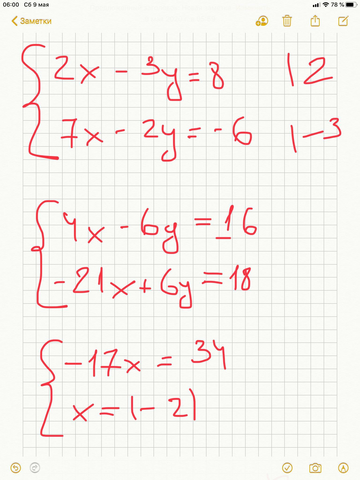 06:00 Сб 9 мая 78 %
Заметки
2x - 3y = 8 | 2
7x - 2y = -6 | -3
4x - 6y = 16
-21x + 6y = 18
-17x = 34
x = (-2)